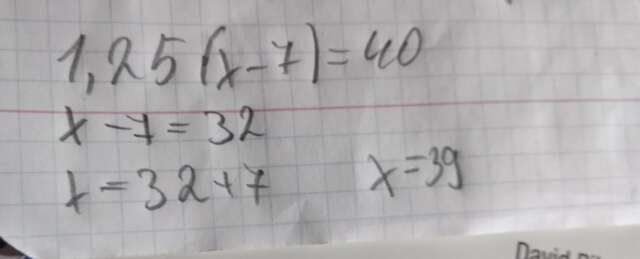 1,25(x-7)=40
x-7=32
x=32+7 x=39
David